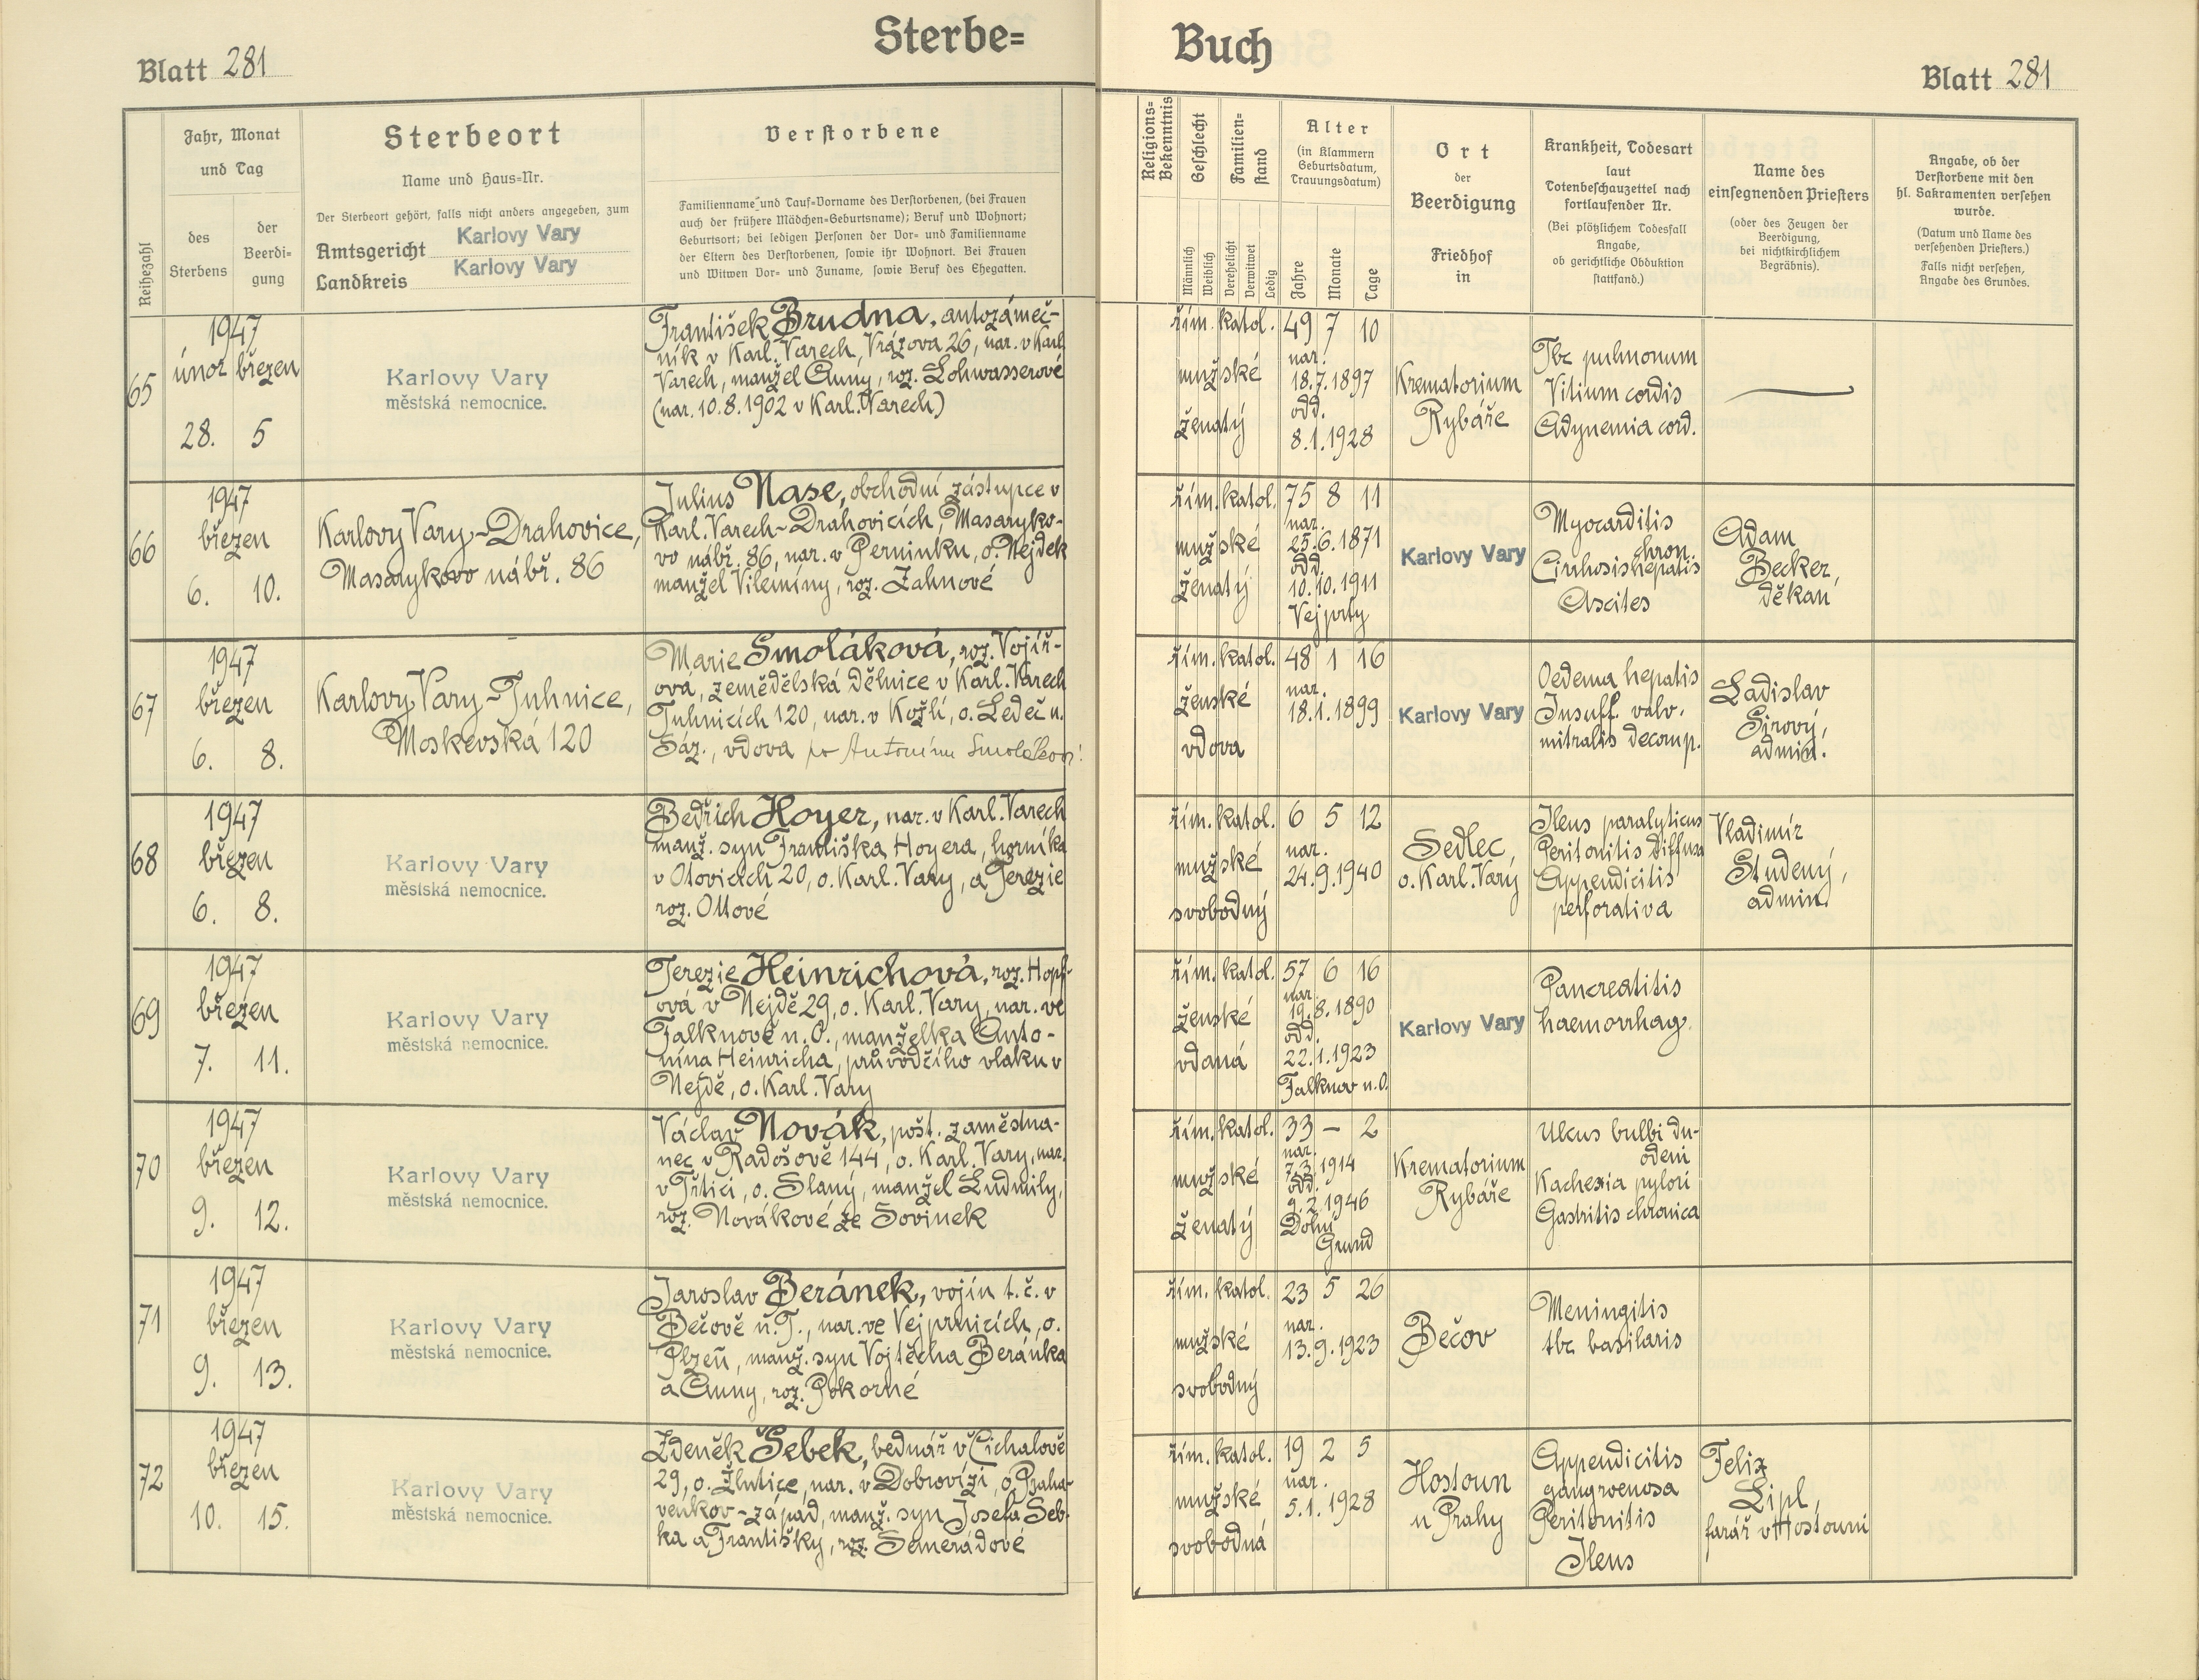 Sterbe=
Buch
Blatt 281
Blatt 281
Reihezahl
Jahr, Monat
und Tag
des
Sterbens
der
Beerdi=
gung
Sterbeort
Name und Haus=Nr.
Der Sterbeort gehört, falls nicht anders angegeben, zum
Amtsgericht Karlovy Vary
Landkreis Karlovy Vary
Verstorbene
Familienname und Tauf=Vorname des Verstorbenen, (bei Frauen
auch der frühere Mädchen=Geburtsname); Beruf und Wohnort;
Geburtsort; bei ledigen Personen der Vor= und Familienname
der Eltern des Verstorbenen, sowie ihr Wohnort. Bei Frauen
und Witwen Vor= und Zuname, sowie Beruf des Ehegatten.
Religions=
Bekenntnis
Geschlecht
Männlich
Weiblich
Familien=
stand
Verehelicht
Verwitwet
Ledig
Alter
(in Klammern
Geburtsdatum,
Trauungsdatum)
Jahre
Monate
Tage
Ort
der
Beerdigung
Friedhof
in
Krankheit, Todesart
laut
Totenbeschauzettel nach
fortlaufender Nr.
(Bei plötzlichem Todesfall
Angabe,
ob gerichtliche Obduktion
stattfand.)
Name des
einsegnenden Priesters
(oder des Zeugen der
Beerdigung,
bei nichtkirchlichem
Begräbnis).
Angabe, ob der
Verstorbene mit den
hl. Sakramenten versehen
wurde.
(Datum und Name des
versehenden Priesters.)
Falls nicht versehen,
Angabe des Grundes.
65
1947
únor březen
28. 5
Karlovy Vary
městská nemocnice.
František Brudna, autozámeč-
ník v Karl. Varech, Vrázova 26, nar. v Karl.
Varech, manžel Anny, roz. Lohwasserové
(nar. 10.8.1902 v Karl. Varech)
řím. katol.
mužské
ženatý
49 7 10
nar.
18.7.1897
odd.
8.1.1928
Krematorium
Rybáře
Tbc pulmonum
Vitium cordis
Adynemia cord.
66
1947
březen
6. 10.
Karlovy Vary-Drahovice,
Masarykovo nábř. 86
Julius Nase, obchodní zástupce v
Karl. Varech-Drahovicích, Masaryko-
vo nábř. 86, nar. v Perninku, o. Nejdek
manžel Vilemíny, roz. Zahnové
řím. katol.
mužské
ženatý
75 8 11
nar.
25.6.1871
odd.
10.10.1911
Vejprty
Karlovy Vary
Myocarditis
chron.
Cirrhosis hepatis
Ascites
Adam
Becker,
děkan
67
1947
březen
6. 8.
Karlovy Vary-Tuhnice,
Moskevská 120
Marie Smoláková, roz. Vojíř-
ová, zemědělská dělnice v Karl. Varech
Tuhnicích 120, nar. v Kožlí, o. Ledeč n.
Sáz., vdova po Antonínu Smolákovi
řím. katol.
ženské
vdova
48 1 16
nar.
18.1.1899
Karlovy Vary
Oedema hepatis
Insuff. valv.
mitralis decomp.
Ladislav
Sirový,
admin.
68
1947
březen
6. 8.
Karlovy Vary
městská nemocnice.
Bedřich Hoyer, nar. v Karl. Varech
manž. syn Františka Hoyera, horníka
v Otovicích 20, o. Karl. Vary, a Terezie
roz. Ottové
řím. katol.
mužské
svobodný
6 5 12
nar.
24.9.1940
Sedlec
o. Karl. Vary
Ileus paralyticus
Peritonitis diffusa
Appendicitis
perforativa
Vladimír
Studený,
admin.
69
1947
březen
7. 11.
Karlovy Vary
městská nemocnice.
Terezie Heinrichová, roz. Hopf-
ová v Nejdě 29, o. Karl. Vary, nar. ve
Falknově n. O., manželka Anto-
nína Heinricha, průvodčího vlaku v
Nejdě, o. Karl. Vary
řím. katol.
ženské
vdaná
57 6 16
nar.
19.8.1890
odd.
22.1.1923
Falknov n. O.
Karlovy Vary
Pancreatitis
haemorrhag.
70
1947
březen
9. 12.
Karlovy Vary
městská nemocnice.
Václav Novák, pošt. zaměstna-
nec v Radošově 144, o. Karl. Vary, nar.
v Třtici, o. Slaný, manžel Ludmily,
roz. Novákové ze Sovinek
řím. katol.
mužské
ženatý
33 – 2
nar.
7.3.1914
odd.
9.2.1946
Dolní
Grund
Krematorium
Rybáře
Ulcus bulbi du-
odeni
Kachexia pylori
Gastritis chronica
71
1947
březen
9. 13.
Karlovy Vary
městská nemocnice.
Jaroslav Beránek, vojín t. č. v
Bečově n. T., nar. ve Vejprnicích, o.
Plzeň, manž. syn Vojtěcha Beránka
a Anny, roz. Pokorné
řím. katol.
mužské
svobodný
23 5 26
nar.
13.9.1923
Bečov
Meningitis
tbc basilaris
72
1947
březen
10. 15.
Karlovy Vary
městská nemocnice.
Zdeněk Šebek, bednář v Čichalově
29, o. Žlutice, nar. v Dobrovízi, o. Praha-
venkov-západ, manž. syn Josefa Šeb-
ka a Františky, roz. Semerádové
řím. katol.
mužské
svobodná
19 2 5
nar.
5.1.1928
Hostoun
u Prahy
Appendicitis
gangraenosa
Peritonitis
Ileus
Felix
Lipl,
farář v Hostouni